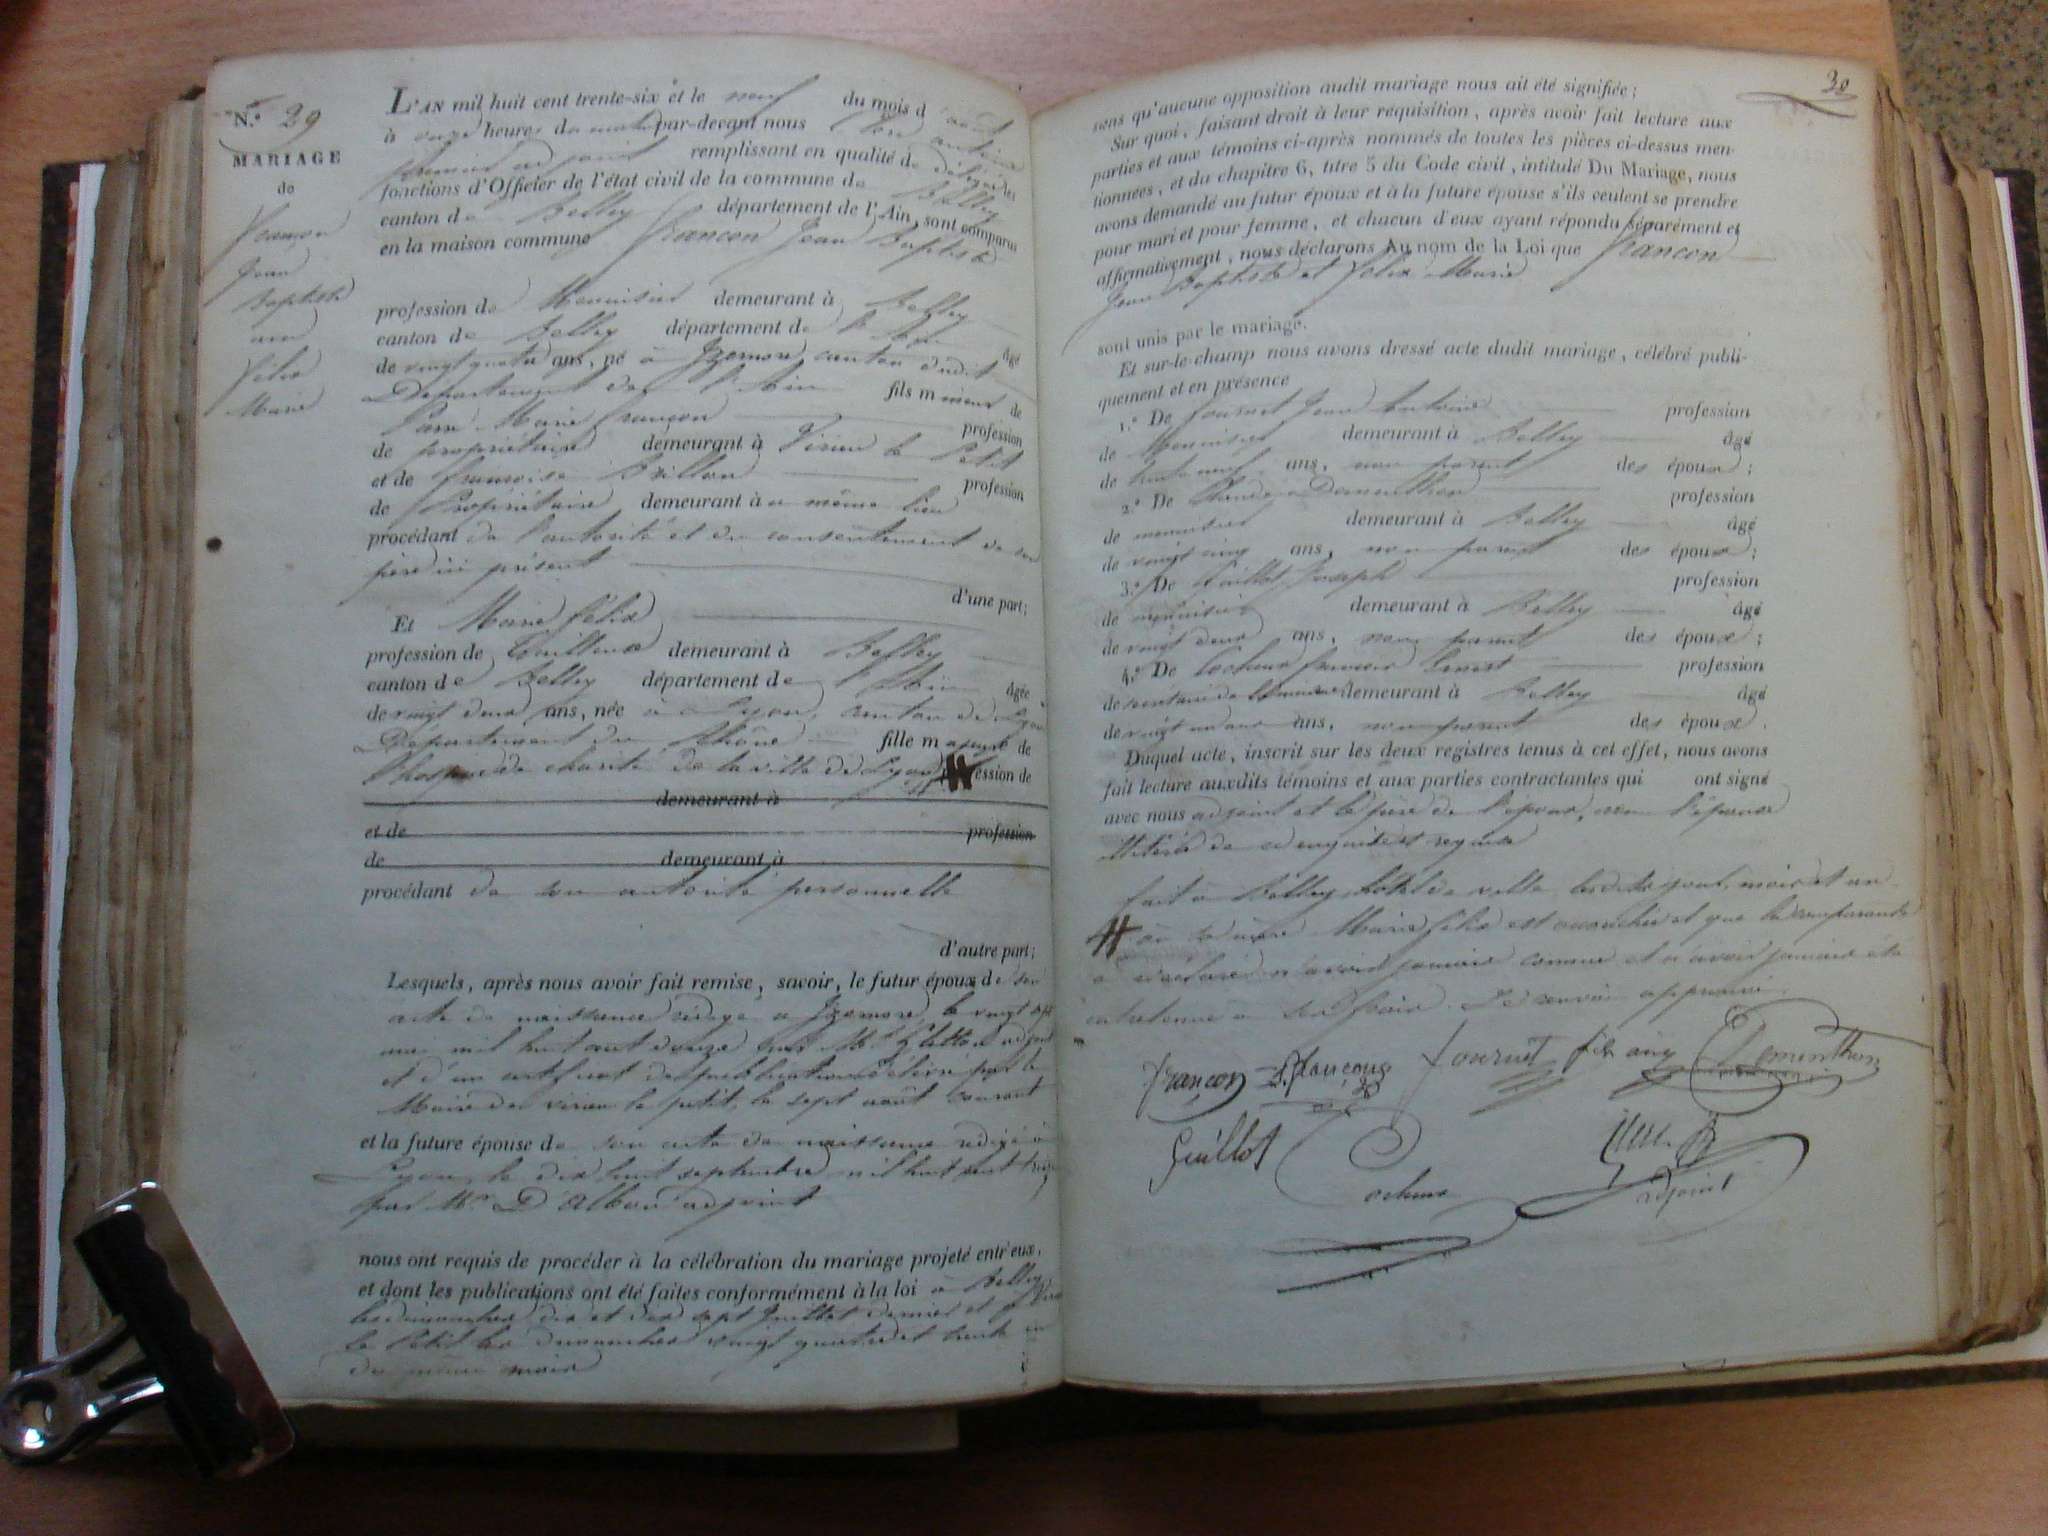 N.º 29
MARIAGE
de
françon
Jean
Baptiste
avec
félix
Marie
L'AN mil huit cent trente-six et le neuf du mois d'août
à onze heures du matin par-devant nous
premier adjoint remplissant en qualité de délégué les
fonctions d'Officier de l'état civil de la commune de Belley
canton de Belley département de l'Ain, sont comparus
en la maison commune françon Jean Baptiste
profession de Menuisier demeurant à Belley
canton de Belley département de l'Ain âgé
de vingt quatre ans, né à Izernore, canton dudit
Département de l'Ain fils mineur de
Marie françon profession
de propriétaire demeurant à Virieu le Petit
et de françoise Brillon profession
de Propriétaire demeurant à u même lieu
procédant de l'autorité et du consentement de son
père ici présent
d'une part;
Et Marie félix
profession de Tailleuse demeurant à Belley
canton de Belley département de l'Ain âgée
de vingt deux ans, née à Lyon, canton de Lyon
Département du Rhône fille majeure de
l'hospice de charité de la ville de Lyon # ession de
demeurant à
et de profession
de demeurant à
procédant de son autorité personnelle
d'autre part;
Lesquels, après nous avoir fait remise, savoir, le futur époux de son
acte de naissance rédigé à Izernore, le vingt sept
mai mil huit cent douze par Mr adjoint
et d'un certificat de publication délivré par le
Maire de virieu le petit, le sept août courant
et la future épouse de son acte de naissance rédigé à
Lyon, le dix huit septembre mil huit cent treize
par Mr. D'Albon adjoint
nous ont requis de procéder à la célébration du mariage projeté entr'eux,
et dont les publications ont été faites conformément à la loi à Belley
les dimanches dix et dix sept Juillet dernier et à Virieu
le Petit les dimanches vingt quatre et trente un
du même mois
30
sens qu'aucune opposition audit mariage nous ait été signifiée;
Sur quoi, faisant droit à leur réquisition, après avoir fait lecture aux
parties et aux témoins ci-après nommés de toutes les pièces ci-dessus men-
tionnées, et du chapitre 6, titre 5 du Code civil, intitulé Du Mariage, nous
avons demandé au futur époux et à la future épouse s'ils veulent se prendre
pour mari et pour femme, et chacun d'eux ayant répondu séparément et
affirmativement, nous déclarons Au nom de la Loi que françon
Jean Baptiste et félix Marie
sont unis par le mariage.
Et sur-le-champ nous avons dressé acte dudit mariage, célébré publi-
quement et en présence
1.º De fournet Jean Antoine profession
de Menuisier demeurant à Belley âgé
de trente neuf ans, non parent des époux;
2.º De Claude Dementhon profession
de menuisier demeurant à Belley âgé
de vingt cinq ans, non parent des époux;
3.º De Guillot Joseph profession
de menuisier demeurant à Belley âgé
de vingt deux ans, non parent des époux;
4.º De Cochene françois Ernest profession
de secrétaire de demeurant à Belley âgé
de vingt ans, non parent des époux.
Duquel acte, inscrit sur les deux registres tenus à cet effet, nous avons
fait lecture auxdits témoins et aux parties contractantes qui ont signé
avec nous adjoint et le père de l'époux, non l'épouse
illitérée de ce enquise et requise
fait à Belley, hôtel de ville, les dits jour, mois et an
# où la mère Marie félix est accouchée et que la comparante
a déclaré n'avoir jamais connue et n'avoir jamais été
entretenue à ses frais. Le renvoi approuvé
françon françon fournet fils ainé Dementhon
Guillot
Cochene
adjoint